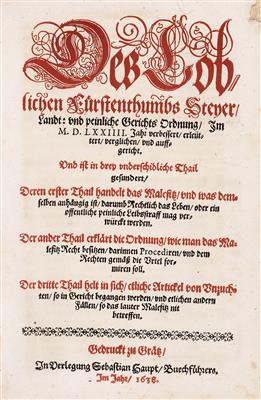 Des Lob,
lichen Fürstenthumbs Steyer/
Landt: vnd peinliche Gerichts Ordnung/ Im
M. D. LXXIIII. Jahr verbessert/ erleüt-
tert/ verglichen/ vnd auff-
gericht.
Vnd ist in drey vnderschidliche Thail
gesundert/
Deren erster Thail handelt das Malefitz/ vnd was dem-
selben anhängig ist/ darumb Rechtlich das Leben/ oder ein
offentliche peinliche Leibsstraff mag ver-
würckt werden.
Der ander Thail erklärt die Ordnung/ wie man das Ma-
lefitz Recht besitzen/ darinnen Procediren/ vnd dem
Rechten gemäß die Vrtel for-
miren soll.
Der dritte Thail helt in sich/ etliche Artickel von Vnzuch-
ten/ so in Gericht begangen werden/ vnd etlichen andern
Fällen/ so das lauter Malefitz nit
betreffen.
Gedruckt zu Grätz/
In Verlegung Sebastian Haupt/ Buechführers.
Im Jahr/ 1638.